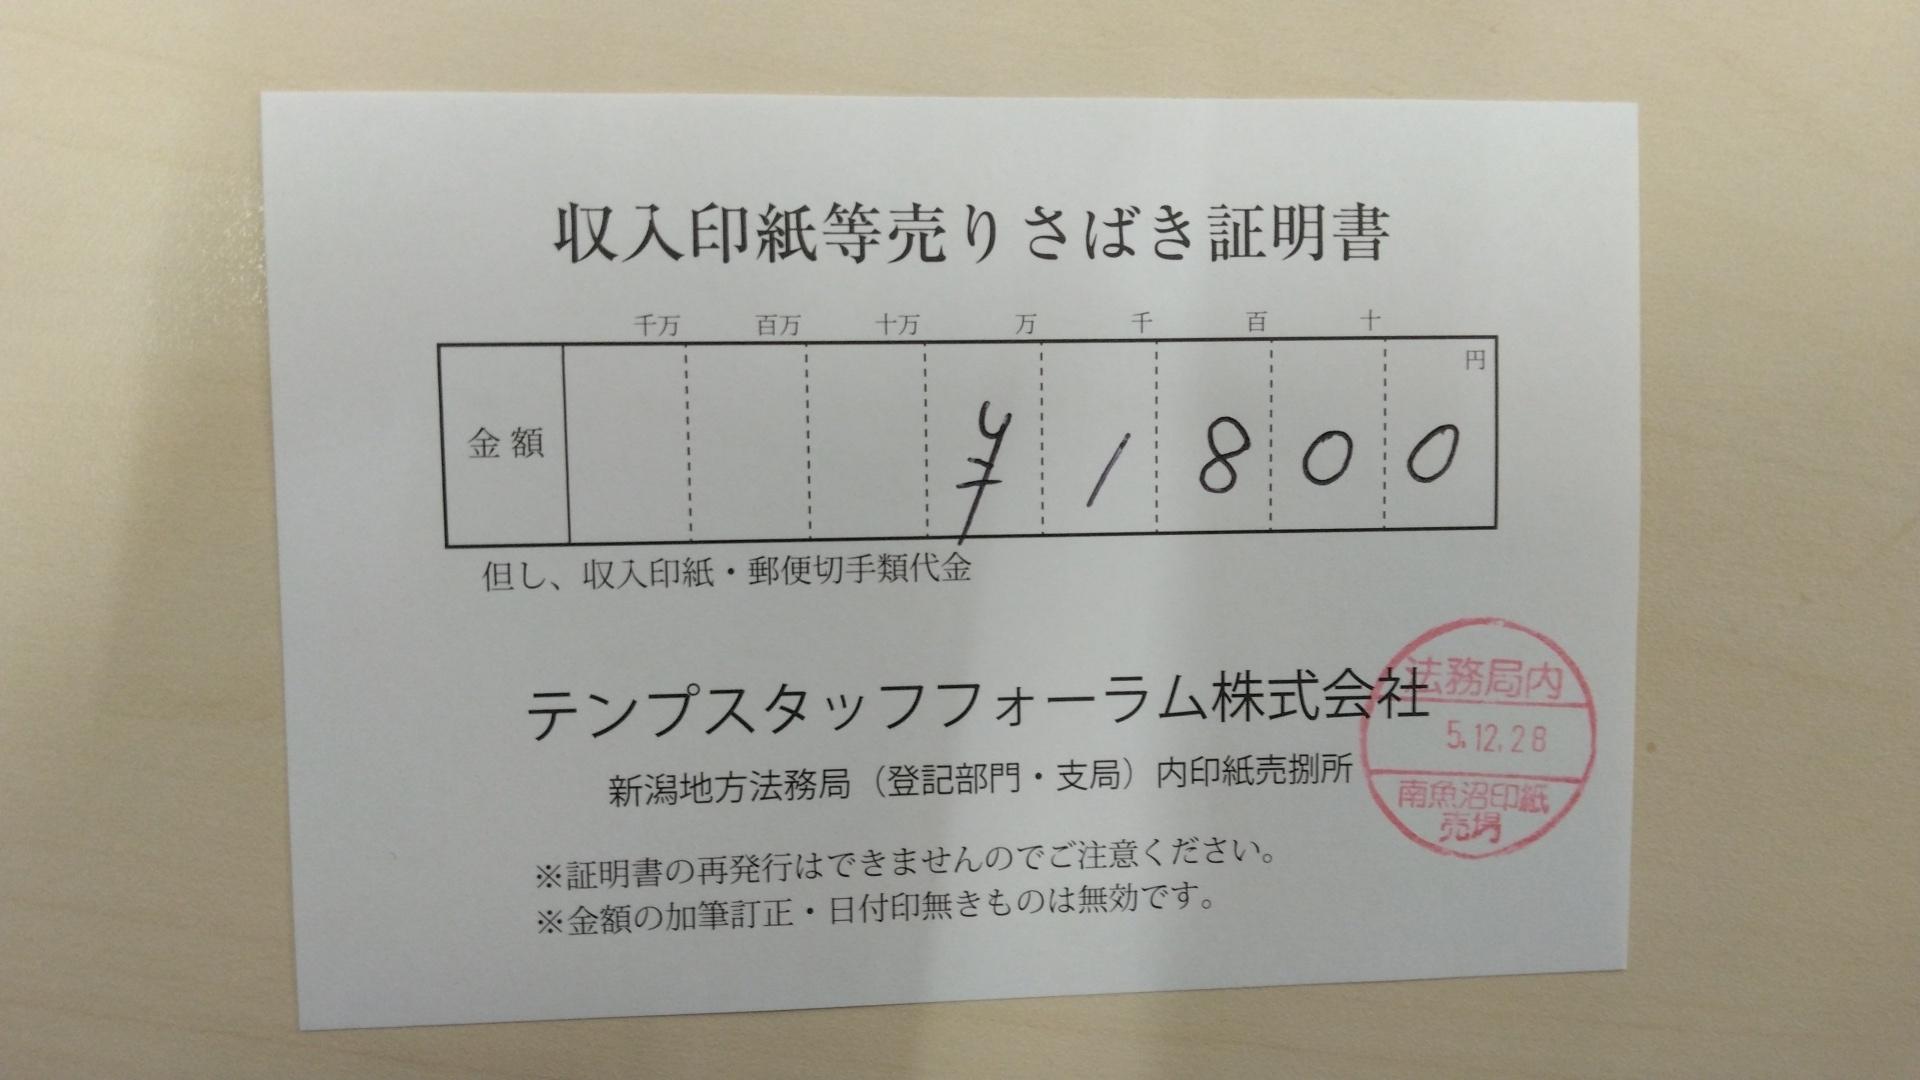 収入印紙等売りさばき証明書
千万 百万 十万 万 千 百 十 円
金額 ¥1800
但し、収入印紙・郵便切手類代金
テンプスタッフフォーラム株式会社
新潟地方法務局（登記部門・支局）内印紙売捌所
法務局内
5.12.28
南魚沼印紙
売場
※証明書の再発行はできませんのでご注意ください。
※金額の加筆訂正・日付印無きものは無効です。